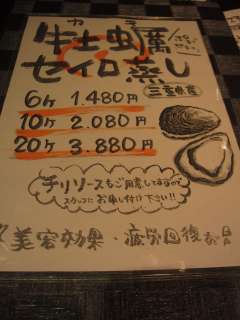 カキ
牡蠣
セイロ蒸し
三重県産
6ケ 1.480円
10ケ 2.080円
20ケ 3.880円
チリソースもご用意してますので
スタッフにお申し付け下さい!!
美容効果・疲労回復